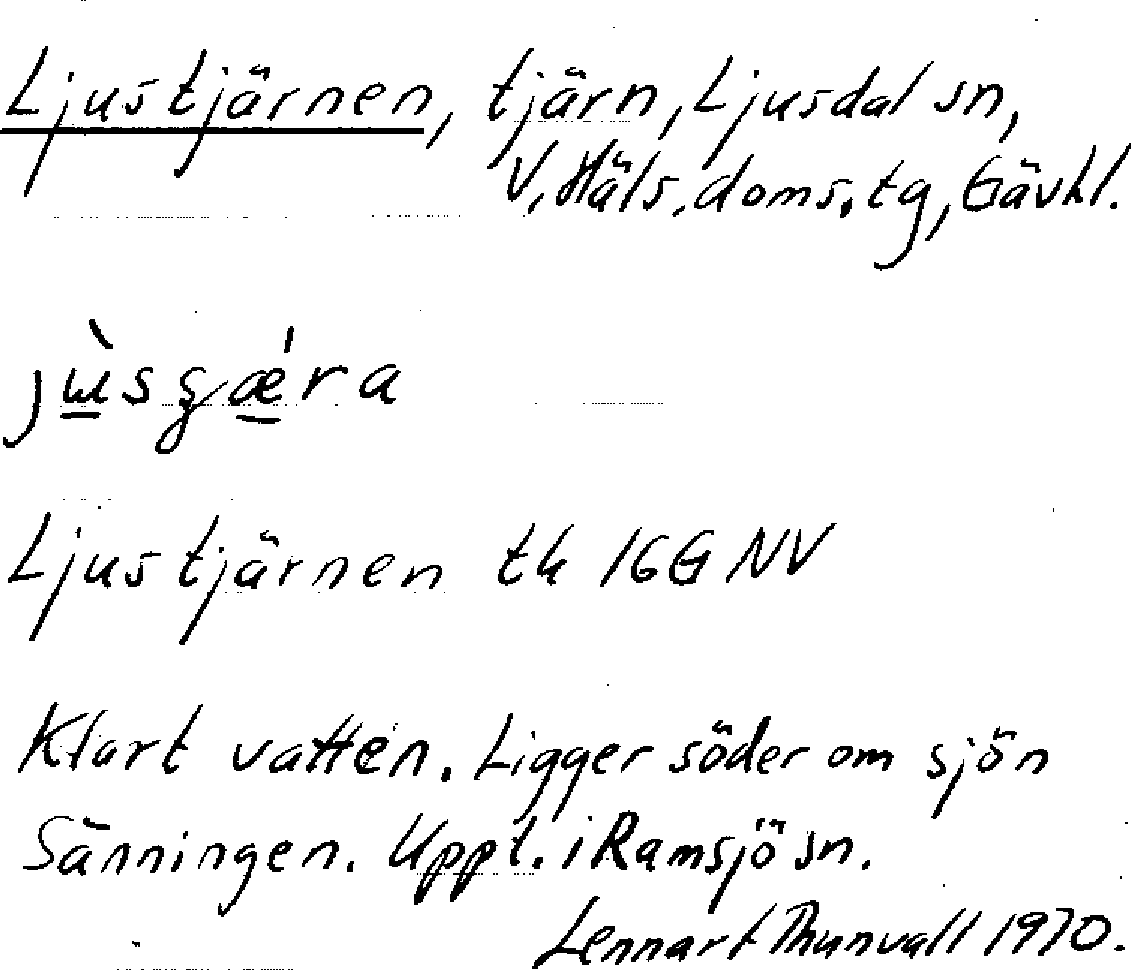 Ljustjärnen, tjärn, Ljusdal sn,
V. Häls. doms. tg, Gävl.
Ljustjärnen tk 16G NV
Klart vatten. Ligger söder om sjön
Sänningen. Uppt. i Ramsjö sn.
Lennart Thunvall 1970.